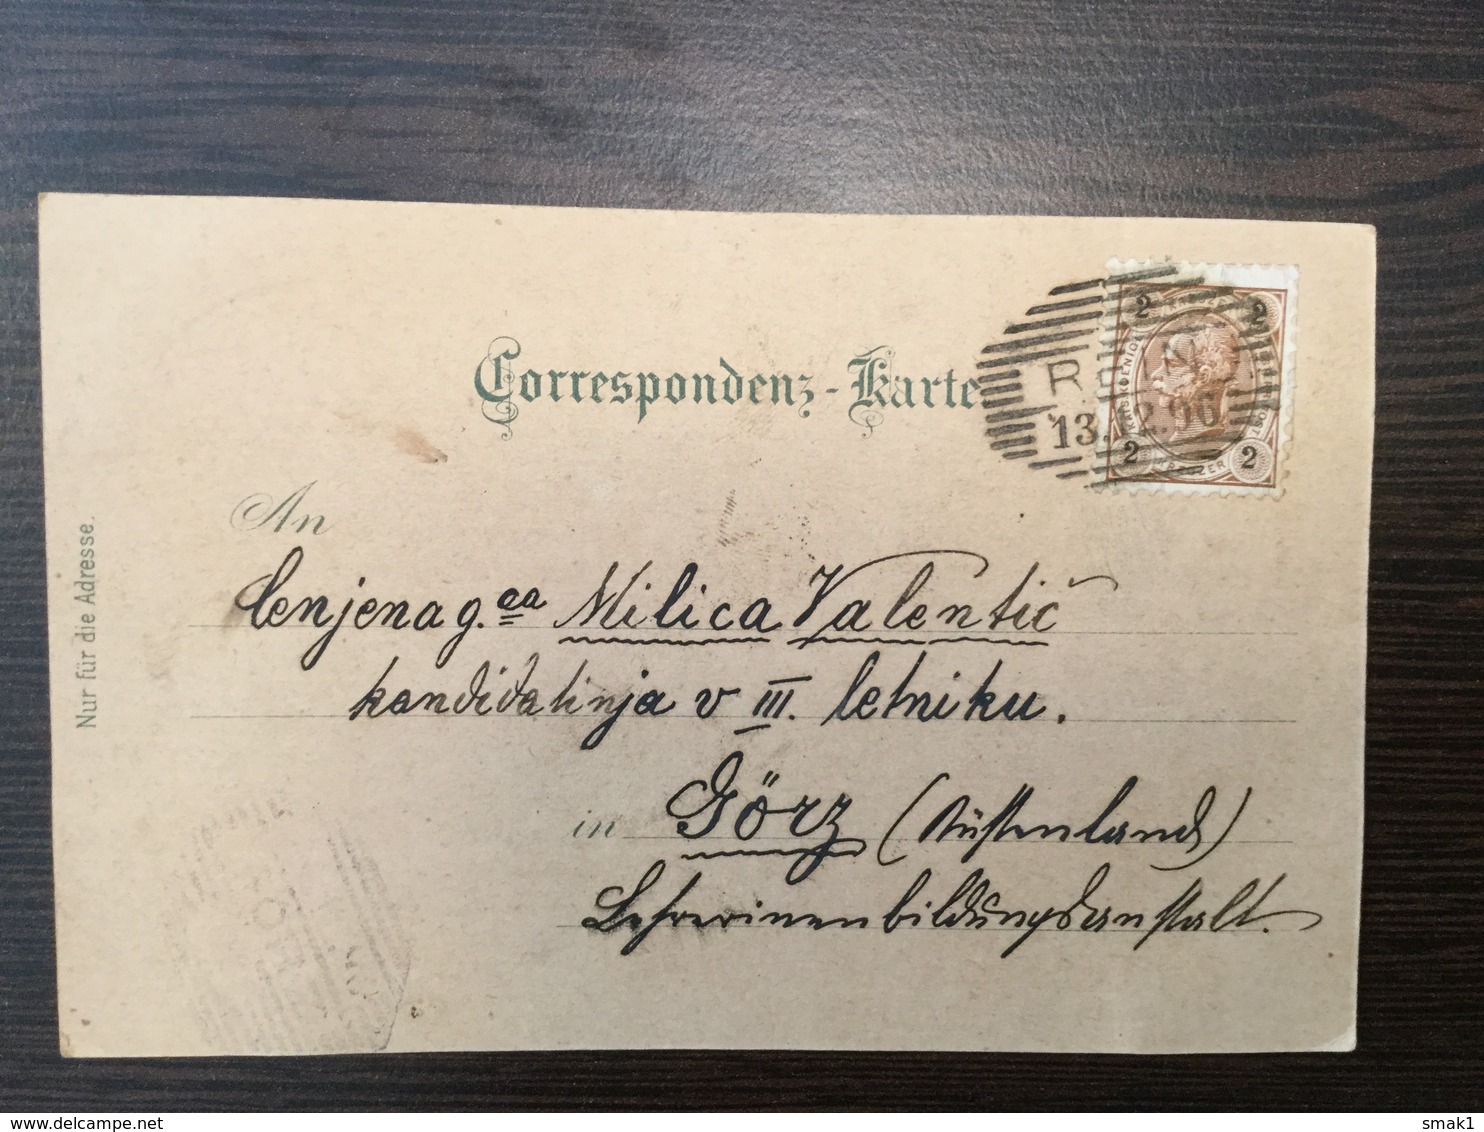 Correspondenz-Karte
R
13. 2.96
2 2
KREUZER
2 2
Nur für die Adresse.
An
Cenjena g.ca Milica Valentić
kandidatinja v III. letniku.
in Görz (Küstenland)
Lehrerinenbildungsanstalt.
smak1